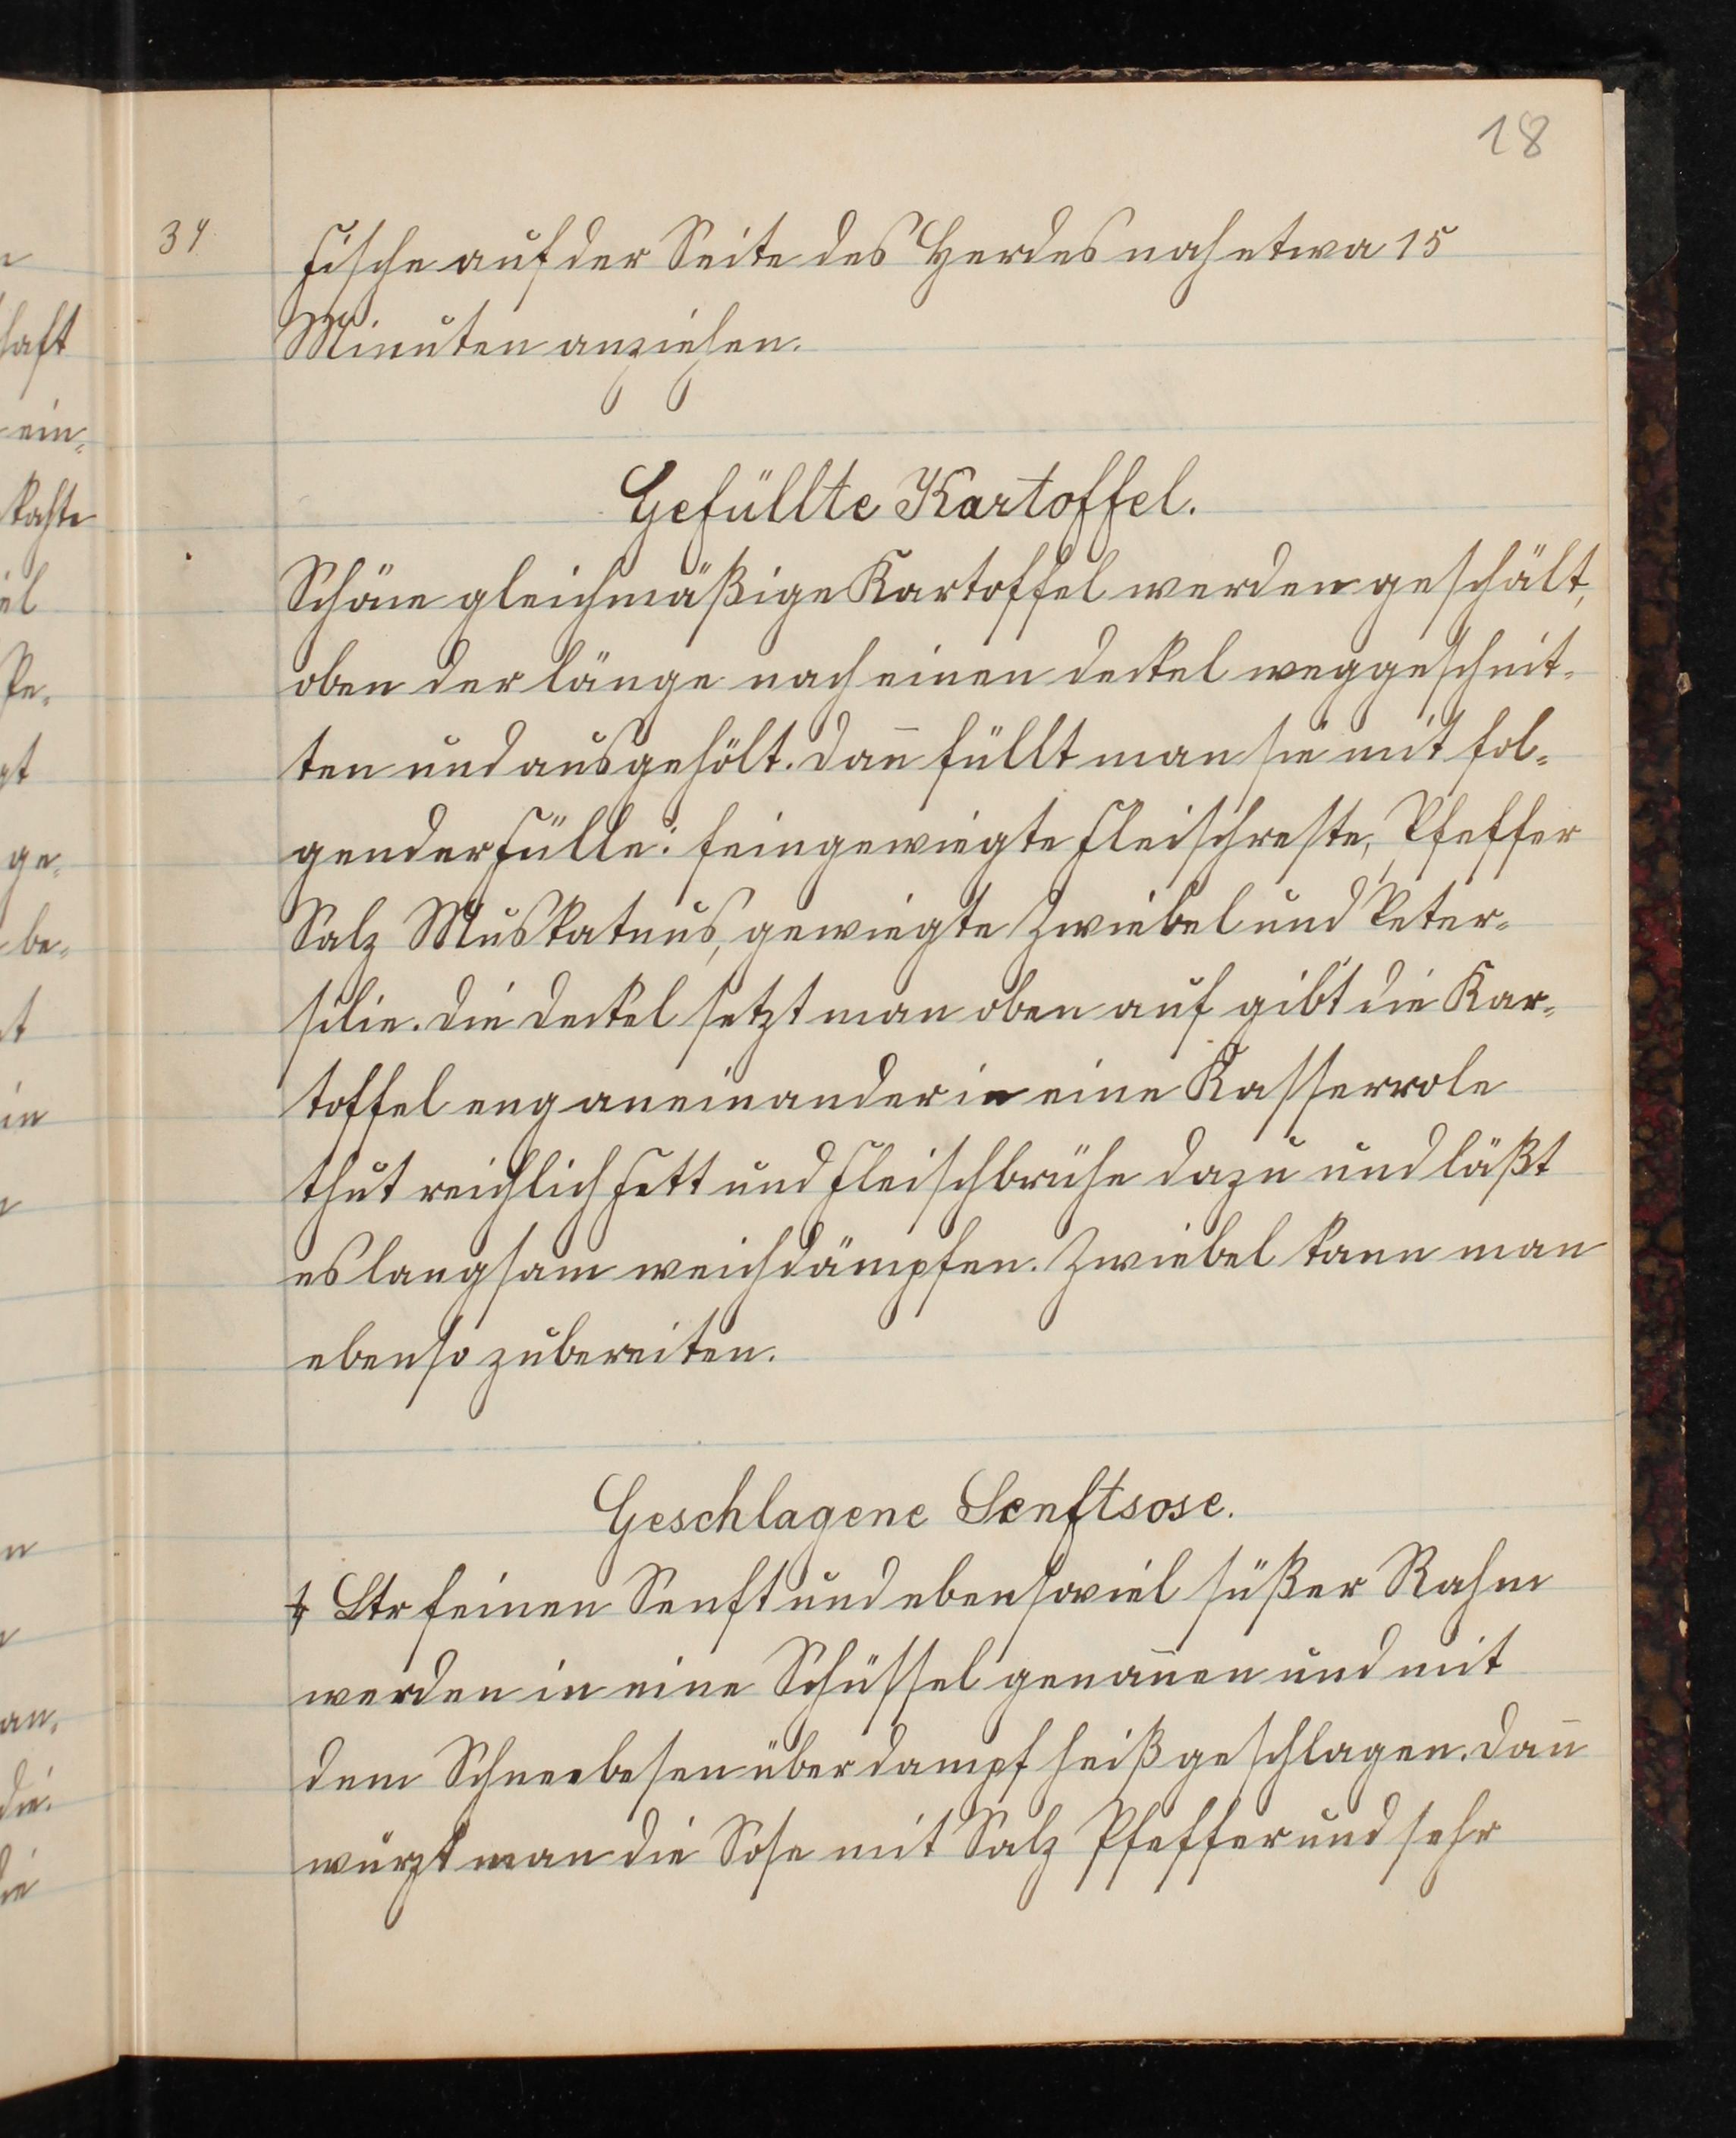 18
34
Fische auf der Seite des Herdes nah etwa 15
Minuten anziehen.
Gefüllte Kartoffel.
Schöne gleichmäßige Kartoffel werden geschält,
oben der länge nach einen deckel weggeschnit-
ten und ausgehölt. Dan̄ füllt man sie mit fol-
gender Fülle: feingewiegte Fleischreste, Pfeffer
Salz Muskatnus, gewiegte Zwiebel und Peter-
silie. Die deckel setzt man oben auf gibt die Kar-
toffel eng aneinander in eine Kasserrole
thut reichlich Fett und Fleischbrühe dazu und läßt
es langsam weichdämpfen. Zwiebel kann man
ebenso zubereiten.
Geschlagene Senftsose.
Ltr feinen Senft und ebensoviel süßer Rahm
werden in eine Schüssel genom̄en und mit
dem Schneebesen über dampf heiß geschlagen. Dan̄
würzt man die Sose mit Salz Pfeffer und sehr